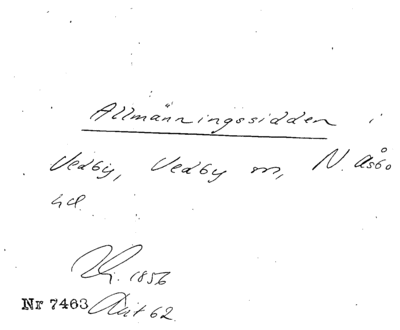 Allmänningssidden i
Vedby, Vedby sn, N. Åsbo
hd.
1856
Nr 7463 Akt 62.